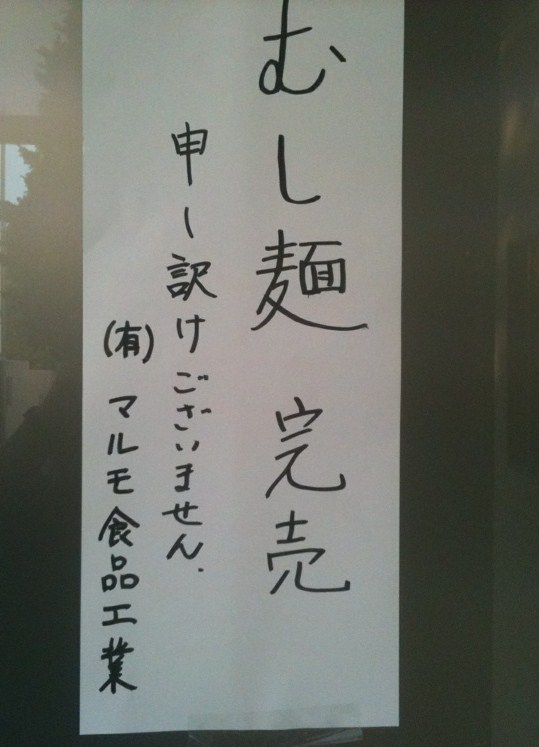 むし麺 完売
申し訳けございません.
(有) マルモ食品工業